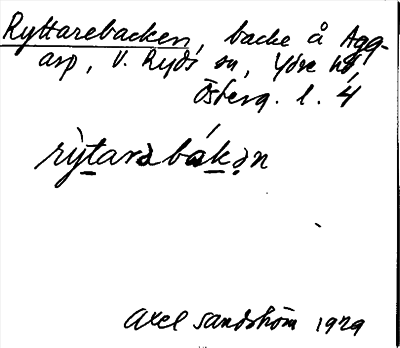 Ryttarebacken, backe å Agg-
arp, V. Ryds sn, Ydre hd,
Östberg. l. 4
rỳtarə bákən
Axel Sandström 1929